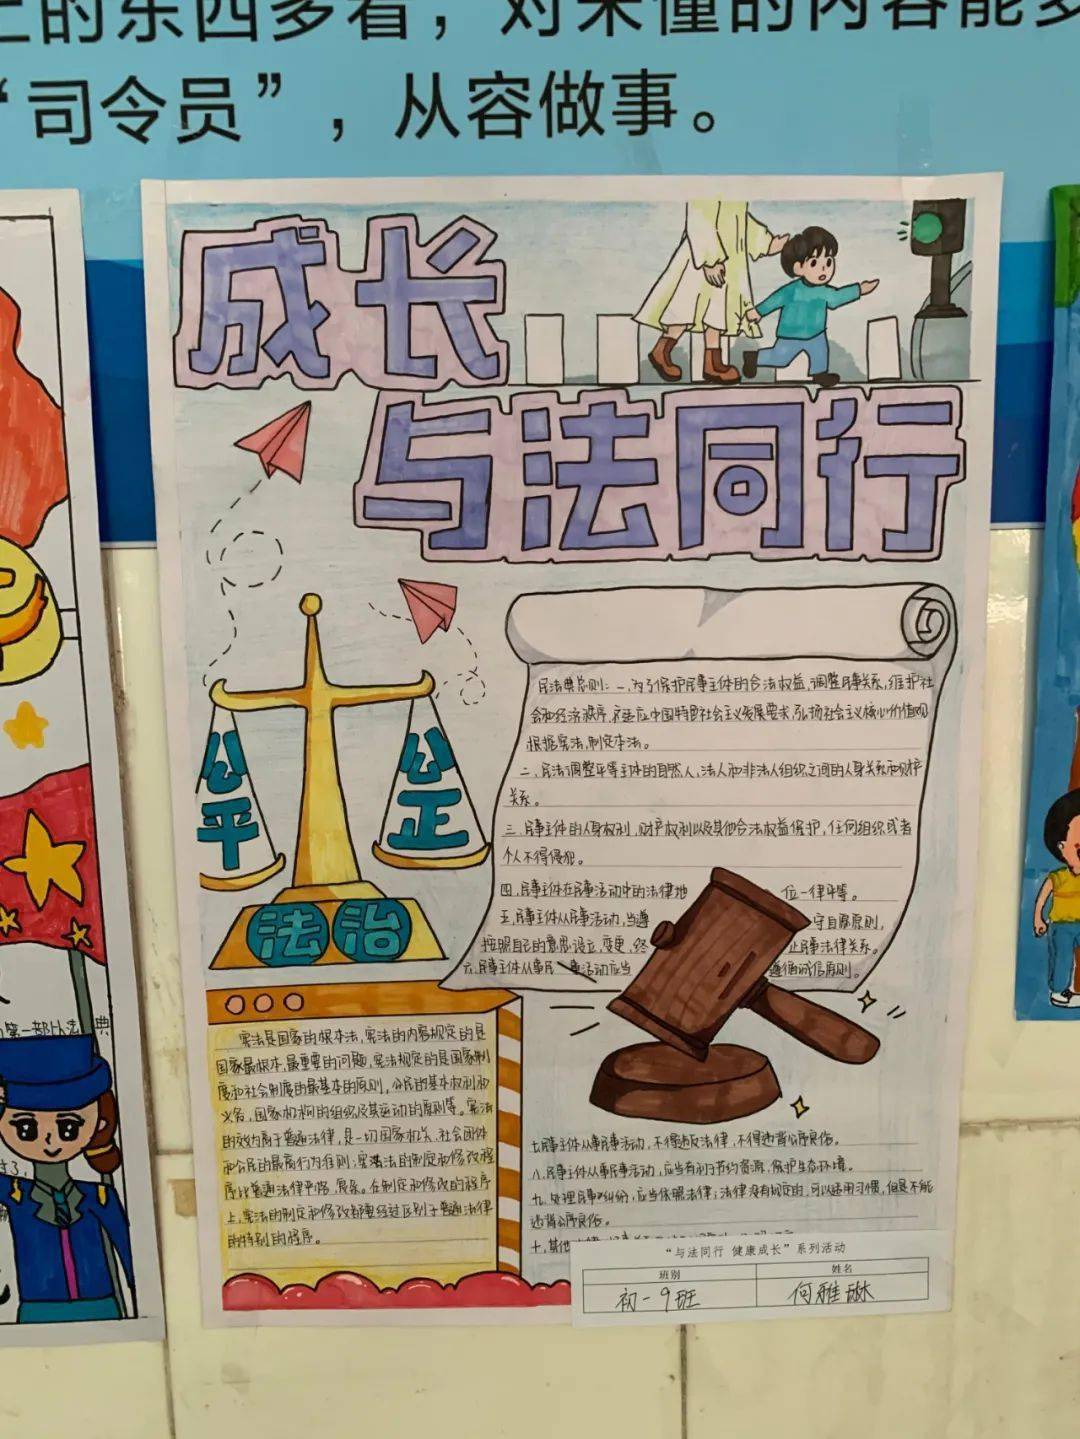 上的东西多看，对未懂的内容能多
“司令员”，从容做事。
成长
与法同行
公平
公正
法治
民法典总则：一、为了保护民事主体的合法权益，调整民事关系，维护社
会和经济秩序，适应中国特色社会主义发展要求，弘扬社会主义核心价值观
根据宪法，制定本法。
二、民法调整平等主体的自然人，法人和非法人组织之间的人身关系和财产
关系。
三、民事主体的人身权利，财产权利以及其他合法权益保护，任何组织或者
个人不得侵犯。
四、民事主体在民事活动中的法律地位一律平等。
五、民事主体从民事活动，当遵守自愿原则，
按照自己的意思设立，变更，终止民事法律关系。
六、民事主体从事民事活动应当遵循诚信原则。
宪法是国家的根本法，宪法的内容规定的是
国家最根本，最重要的问题，宪法规定的是国家制
度和社会制度的最基本的原则，公民的基本权利和
义务，国家机构的组织及其运动的原则等。宪法
的效力高于普通法律，是一切国家机关，社会团体
和公民的最高行为准则，宪法的制定和修改程
序比普通法律严格，复杂。在制定和修改的程序
上，宪法的制定和修改都要经过区别于普通法律
的特别的程序。
七、民事主体从事民事活动，不得违反法律，不得违背公序良俗。
八、民事主体从事民事活动，应当有利于节约资源，保护生态环境。
九、处理民事纠纷，应当依照法律；法律没有规定的，可以适用习惯，但是不能
违背公序良俗。
十、其他
“与法同行 健康成长”系列活动
班别 姓名
初一9班 何雅琳